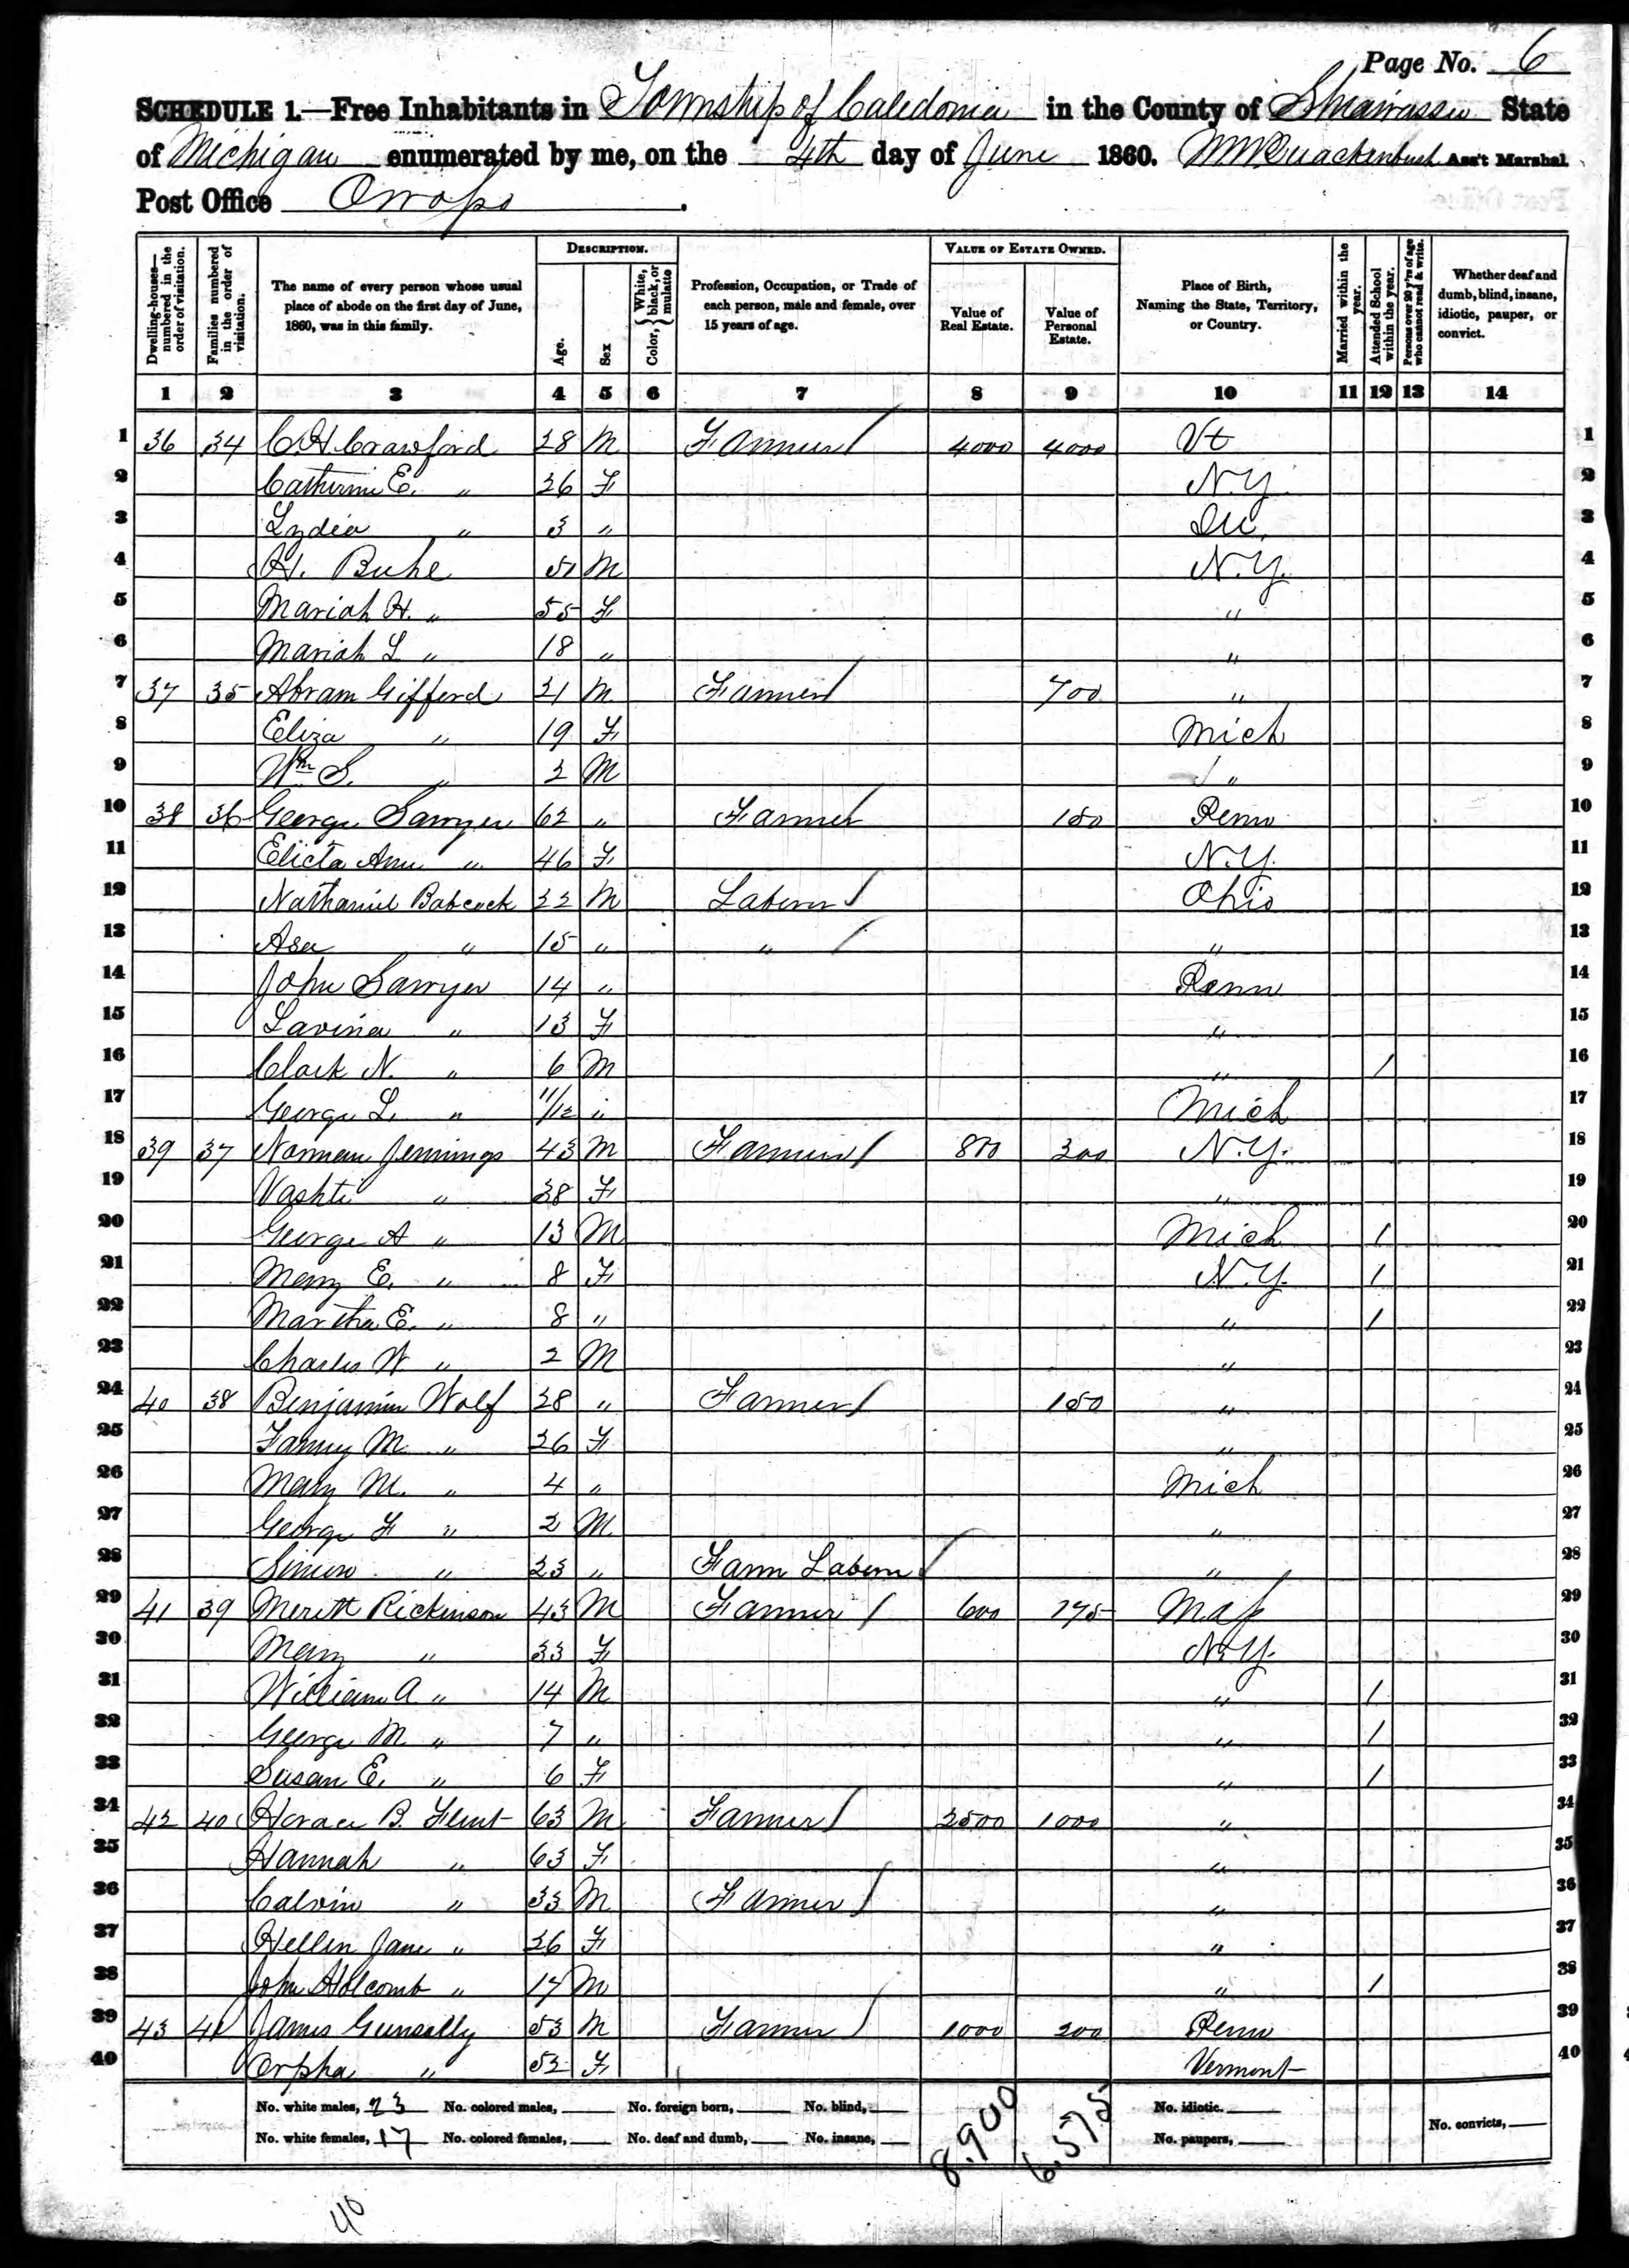 Page No. 6
SCHEDULE 1.—Free Inhabitants in Township of Caledonia in the County of Shiawassee State
of Michigan enumerated by me, on the 4th day of June 1860. Quackenbush Ass't Marshal
Post Office Owosso.
Dwelling-houses—numbered in the order of visitation. Families numbered in the order of visitation. The name of every person whose usual place of abode on the first day of June, 1860, was in this family. DESCRIPTION. Age. Sex Color, { White, black, or mulatto Profession, Occupation, or Trade of each person, male and female, over 15 years of age. VALUE OF ESTATE OWNED. Value of Real Estate. Value of Personal Estate. Place of Birth, Naming the State, Territory, or Country. Married within the year. Attended School within the year. Persons over 20 y'rs of age who cannot read & write. Whether deaf and dumb, blind, insane, idiotic, pauper, or convict.
1 2 3 4 5 6 7 8 9 10 11 12 13 14
1 36 34 C. H. Crawford 28 M Farmer / 4000 4000 Vt 1
2 Catherine E. " 26 F N.Y. 2
3 Lydia " 3 " Ill. 3
4 H. Buhl 51 M N.Y. 4
5 Mariah H. " 55 F " 5
6 Mariah L " 18 " " 6
7 37 35 Abram Gifford 21 M Farmer / 700 " 7
8 Eliza " 19 F Mich 8
9 Wm S. " 2 M " 9
10 38 36 George Sawyer 62 " Farmer 150 Penn 10
11 Elicta Ann " 46 F N.Y. 11
12 Nathaniel Babcock 22 M Laborer / Ohio 12
13 Asa " 15 " " / " 13
14 John Sawyer 14 " Penn 14
15 Lavina " 13 F " 15
16 Clark N. " 6 M " 1 16
17 George L. " 11/12 " Mich 17
18 39 37 Norman Jennings 43 M Farmer / 800 300 N.Y. 18
19 Vashti " 38 F " 19
20 George A " 13 M Mich 1 20
21 Mary E. " 8 F N.Y. 1 21
22 Martha E. " 8 " " 1 22
23 Charles W " 2 M " 23
24 40 38 Benjamin Wolf 28 " Farmer / 150 " 24
25 Fanny M " 26 F " 25
26 Mary M. " 4 " Mich 26
27 George F " 2 M " 27
28 Simeon " 23 " Farm Laborer / " 28
29 41 39 Meritt Rickinson 43 M Farmer / 600 775 Mass 29
30 Mary " 33 F N.Y. 30
31 William A " 14 M " 1 31
32 George M " 7 " " 1 32
33 Susan E. " 6 F " 1 33
34 42 40 Horace B. Flint 63 M Farmer / 2500 1000 " 34
35 Hannah " 63 F " 35
36 Calvin " 33 M Farmer / " 36
37 Hellen Jane " 26 F " 37
38 John Holcomb " 17 M " 1 38
39 43 41 James Gunsally 53 M Farmer / 1000 200 Penn 39
40 Orpha " 52 F Vermont 40
No. white males, 23 No. colored males, No. foreign born, No. blind, 8.900 6.575 No. idiotic.
No. white females, 17 No. colored females, No. deaf and dumb, No. insane, No. paupers, No. convicts,
40